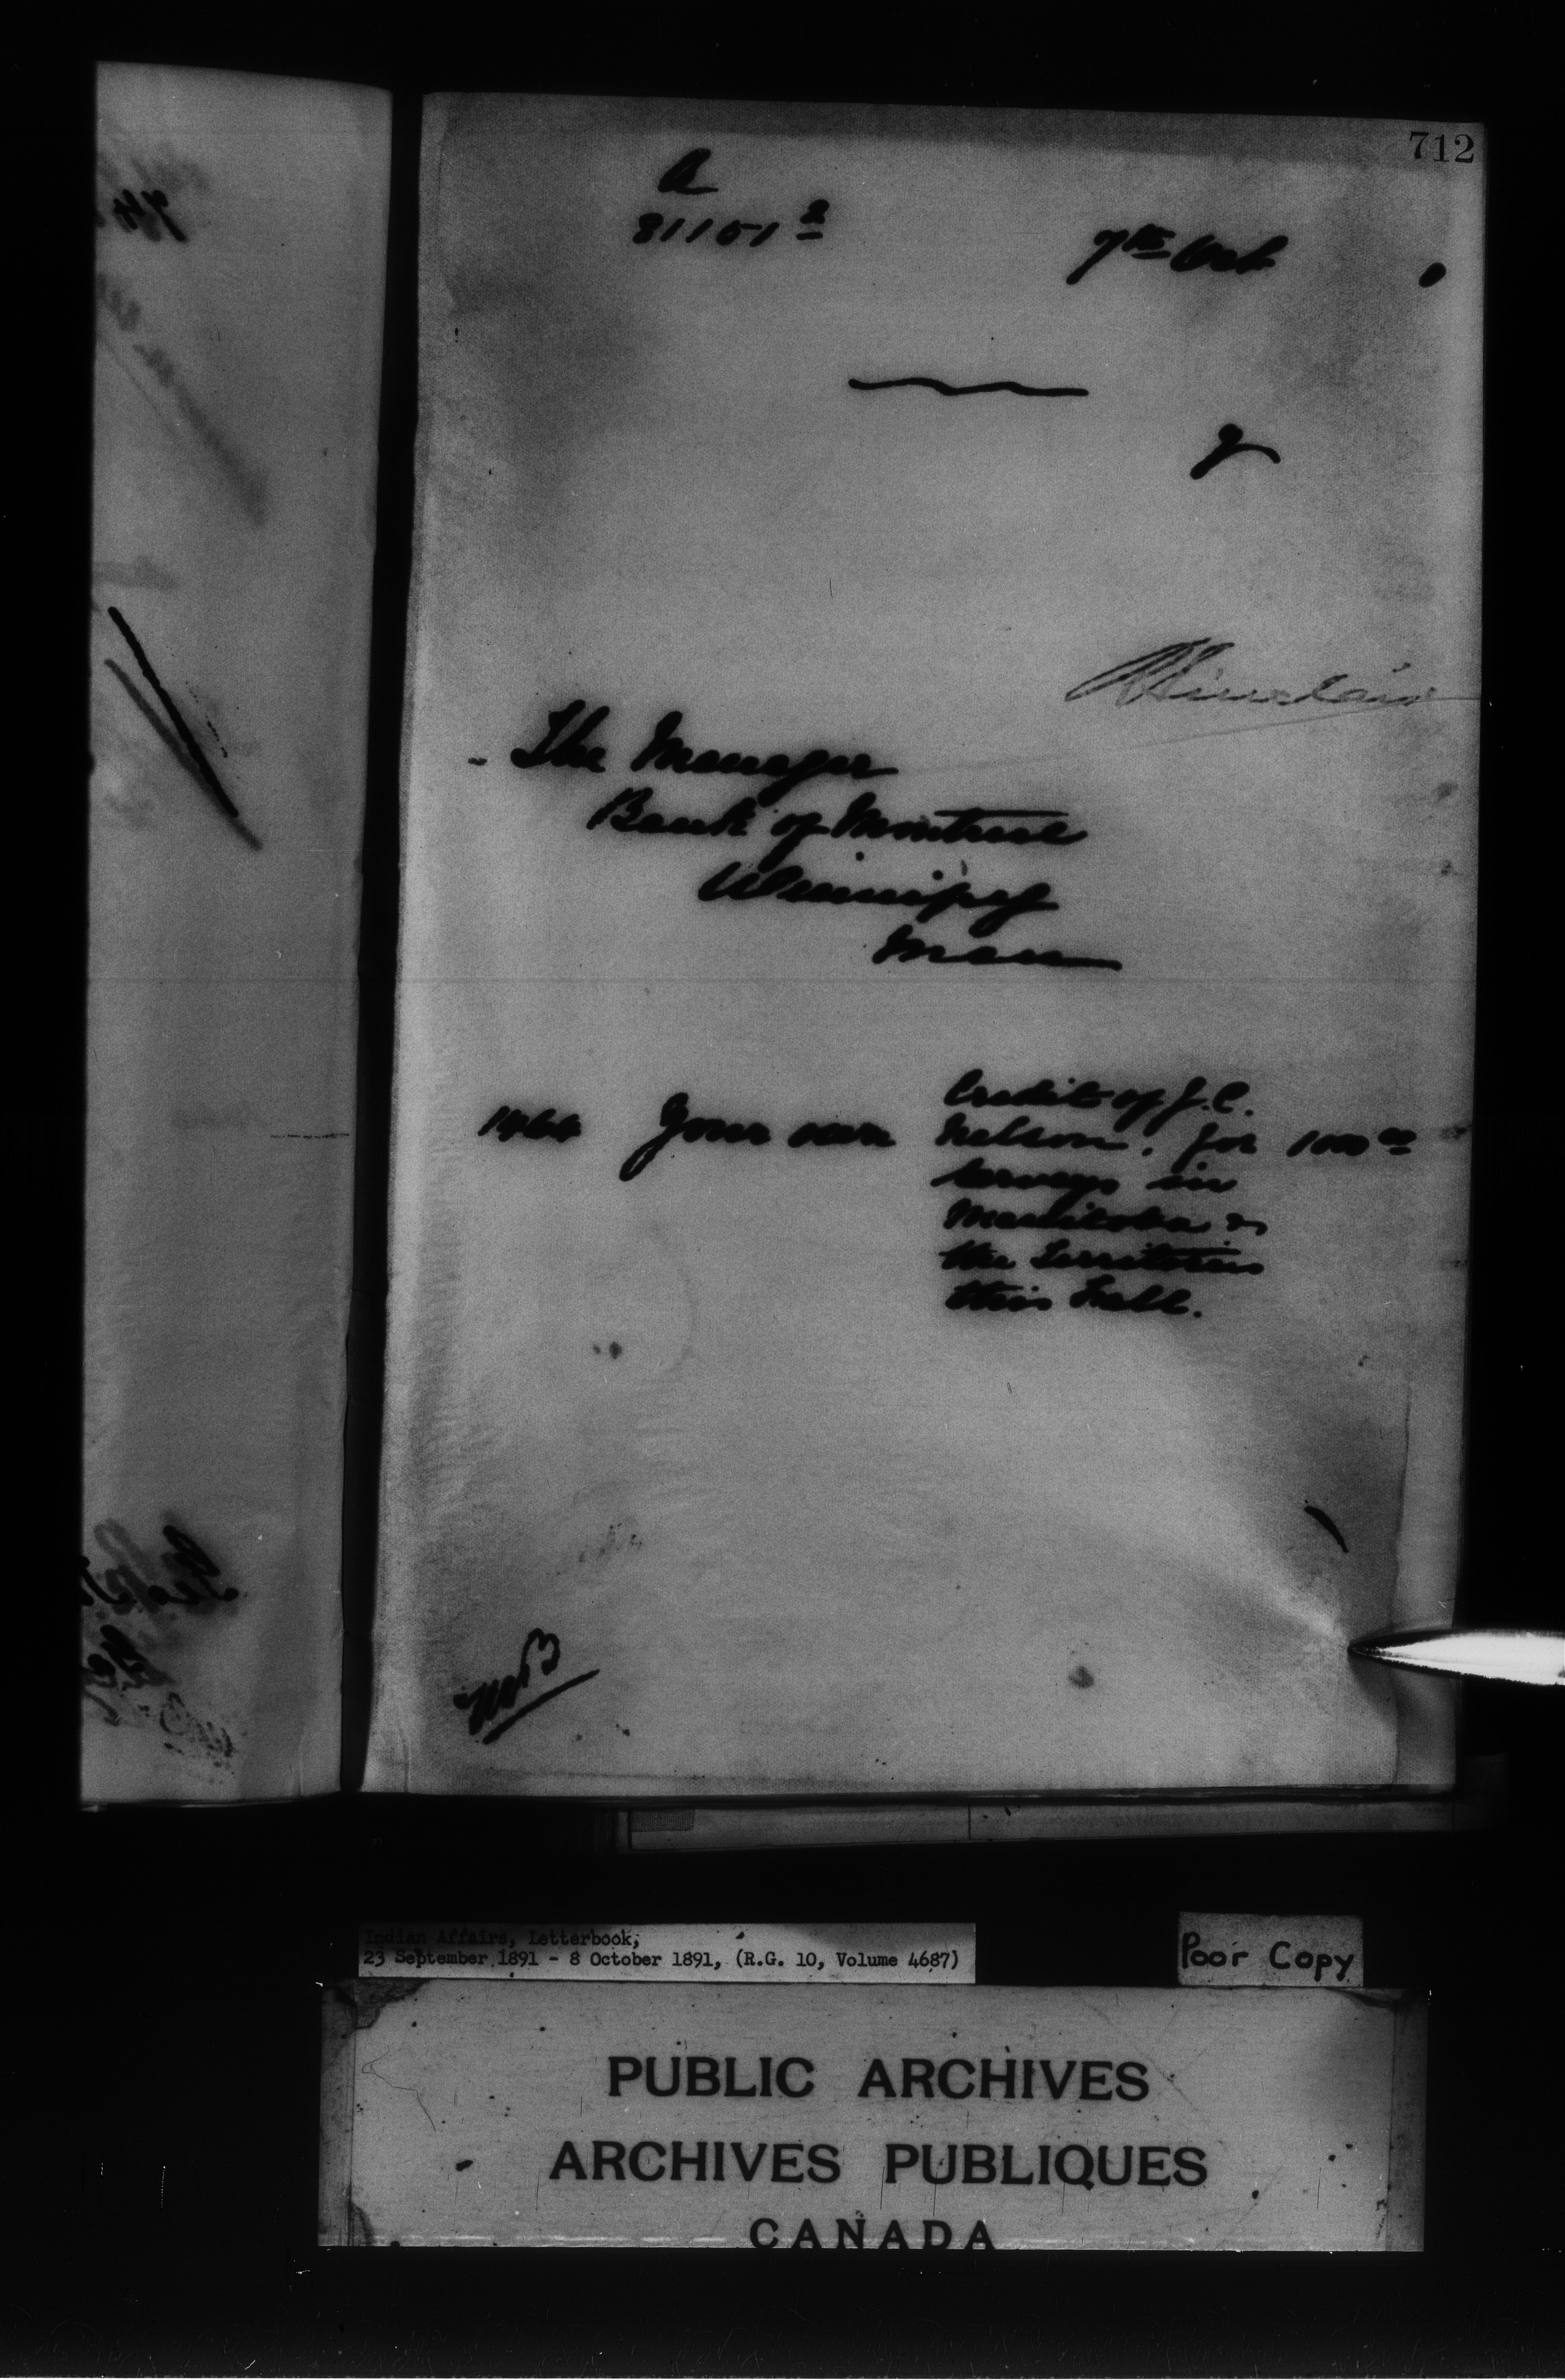 712
A
81151²
7th Oct
The Manager
Bank of Montreal
Winnipeg
Man
1466 Your own Credit of J.C.
Nelson, for 100⁰⁰
surveys in
Manitoba &
the Territories
this Fall.
Indian Affairs, Letterbook,
23 September 1891 - 8 October 1891, (R.G. 10, Volume 4687)
Poor Copy
PUBLIC ARCHIVES
ARCHIVES PUBLIQUES
CANADA